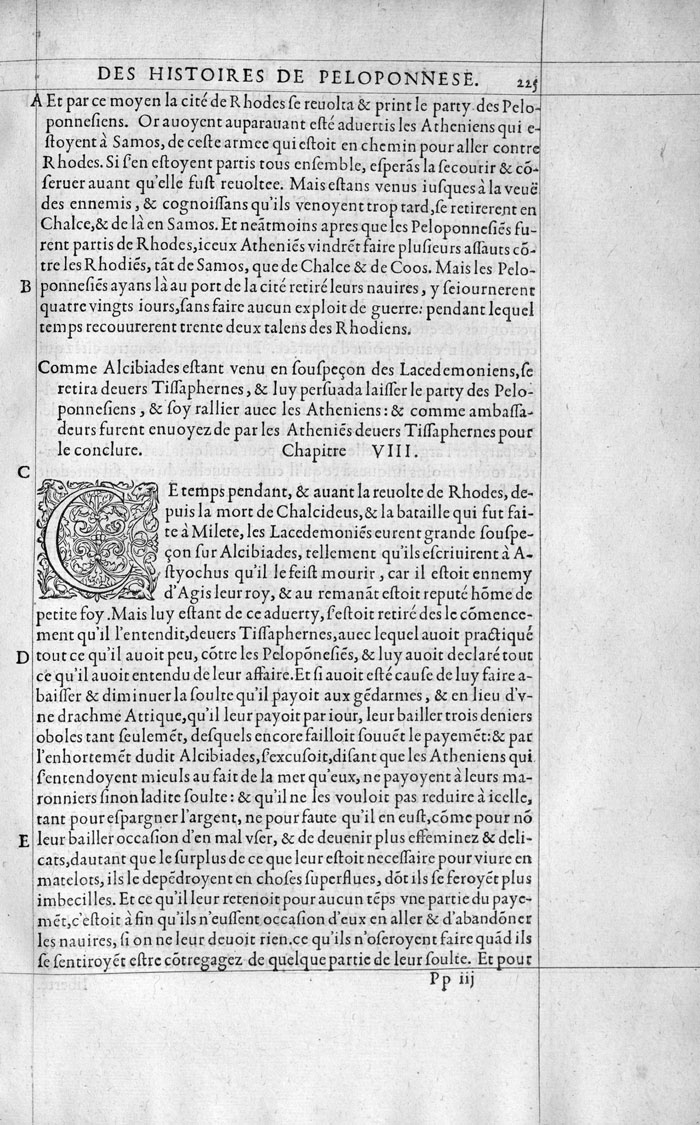 DES HISTOIRES DE PELOPONNESE. 225
A Et par ce moyen la cité de Rhodes ſe reuolta & print le party des Pelo-
ponneſiens. Or auoyent auparauant eſté aduertis les Atheniens qui e-
ſtoyent à Samos, de ceſte armee qui eſtoit en chemin pour aller contre
Rhodes. Si ſ'en eſtoyent partis tous enſemble, eſperãs la ſecourir & cõ-
ſeruer auant qu'elle fuſt reuoltee. Mais eſtans venus iuſques à la veuë
des ennemis, & cognoiſſans qu'ils venoyent trop tard, ſe retirerent en
Chalce, & de là en Samos. Et neãtmoins apres que les Peloponneſiẽs fu-
rent partis de Rhodes, iceux Atheniẽs vindrẽt faire pluſieurs aſſauts cõ-
tre les Rhodiẽs, tãt de Samos, que de Chalce & de Coos. Mais les Pelo-
B ponneſiẽs ayans là au port de la cité retiré leurs nauires, y ſeiournerent
quatre vingts iours, ſans faire aucun exploit de guerre: pendant lequel
temps recouurerent trente deux talens des Rhodiens.
Comme Alcibiades eſtant venu en ſouſpeçon des Lacedemoniens, ſe
retira deuers Tiſſaphernes, & luy perſuada laiſſer le party des Pelo-
ponneſiens, & ſoy rallier auec les Atheniens: & comme ambaſſa-
deurs furent enuoyez de par les Atheniẽs deuers Tiſſaphernes pour
le conclure. Chapitre VIII.
C
CE temps pendant, & auant la reuolte de Rhodes, de-
puis la mort de Chalcideus, & la bataille qui fut fai-
te à Milete, les Lacedemoniẽs eurent grande ſouſpe-
çon ſur Alcibiades, tellement qu'ils eſcriuirent à A-
ſtyochus qu'il le feiſt mourir, car il eſtoit ennemy
d'Agis leur roy, & au remanãt eſtoit reputé hõme de
petite foy. Mais luy eſtant de ce aduerty, ſ'eſtoit retiré des le cõmence-
ment qu'il l'entendit, deuers Tiſſaphernes, auec lequel auoit practiqué
D tout ce qu'il auoit peu, cõtre les Pelopõneſiẽs, & luy auoit declaré tout
ce qu'il auoit entendu de leur affaire. Et ſi auoit eſté cauſe de luy faire a-
baiſſer & diminuer la ſoulte qu'il payoit aux gẽdarmes, & en lieu d'v-
ne drachme Attique, qu'il leur payoit par iour, leur bailler trois deniers
oboles tant ſeulemẽt, deſquels encore failloit ſouuẽt le payemẽt: & par
l'enhortemẽt dudit Alcibiades, ſ'excuſoit, diſant que les Atheniens qui
ſ'entendoyent mieuls au fait de la mer qu'eux, ne payoyent à leurs ma-
ronniers ſinon ladite ſoulte: & qu'il ne les vouloit pas reduire à icelle,
tant pour eſpargner l'argent, ne pour faute qu'il en euſt, cõme pour nõ
E leur bailler occaſion d'en mal vſer, & de deuenir plus effeminez & deli-
cats, dautant que le ſurplus de ce que leur eſtoit neceſſaire pour viure en
matelots, ils le depẽdroyent en choſes ſuperflues, dõt ils ſe feroyẽt plus
imbecilles. Et ce qu'il leur retenoit pour aucun tẽps vne partie du paye-
mẽt, c'eſtoit à fin qu'ils n'euſſent occaſion d'eux en aller & d'abandõner
les nauires, ſi on ne leur deuoit rien. ce qu'ils n'oſeroyent faire quãd ils
ſe ſentiroyẽt eſtre cõtregagez de quelque partie de leur ſoulte. Et pour
Pp iij